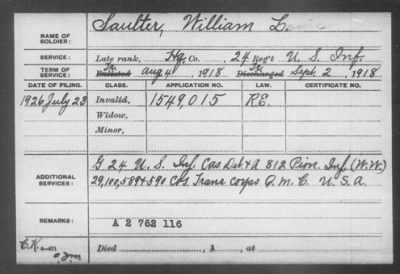 NAME OF SOLDIER: Saulter, William L.
SERVICE: Late rank, Hq Co. 24 Reg't U. S. Inf.
TERM OF SERVICE: Enlisted Aug 4, 1918. Discharged Sept. 2, 1918
DATE OF FILING. CLASS. APPLICATION NO. LAW. CERTIFICATE NO.
1926 July 23 Invalid, 1549,015 R.E.
Widow,
Minor,
ADDITIONAL SERVICES: G 24 U. S. Inf. Cas. Det. + A 812 Pion. Inf. (W.W.)
29,100,589+590 Cos. Trans Corps Q. M. C. U. S. A.
REMARKS: A 2 762 116
Died , 1 , at